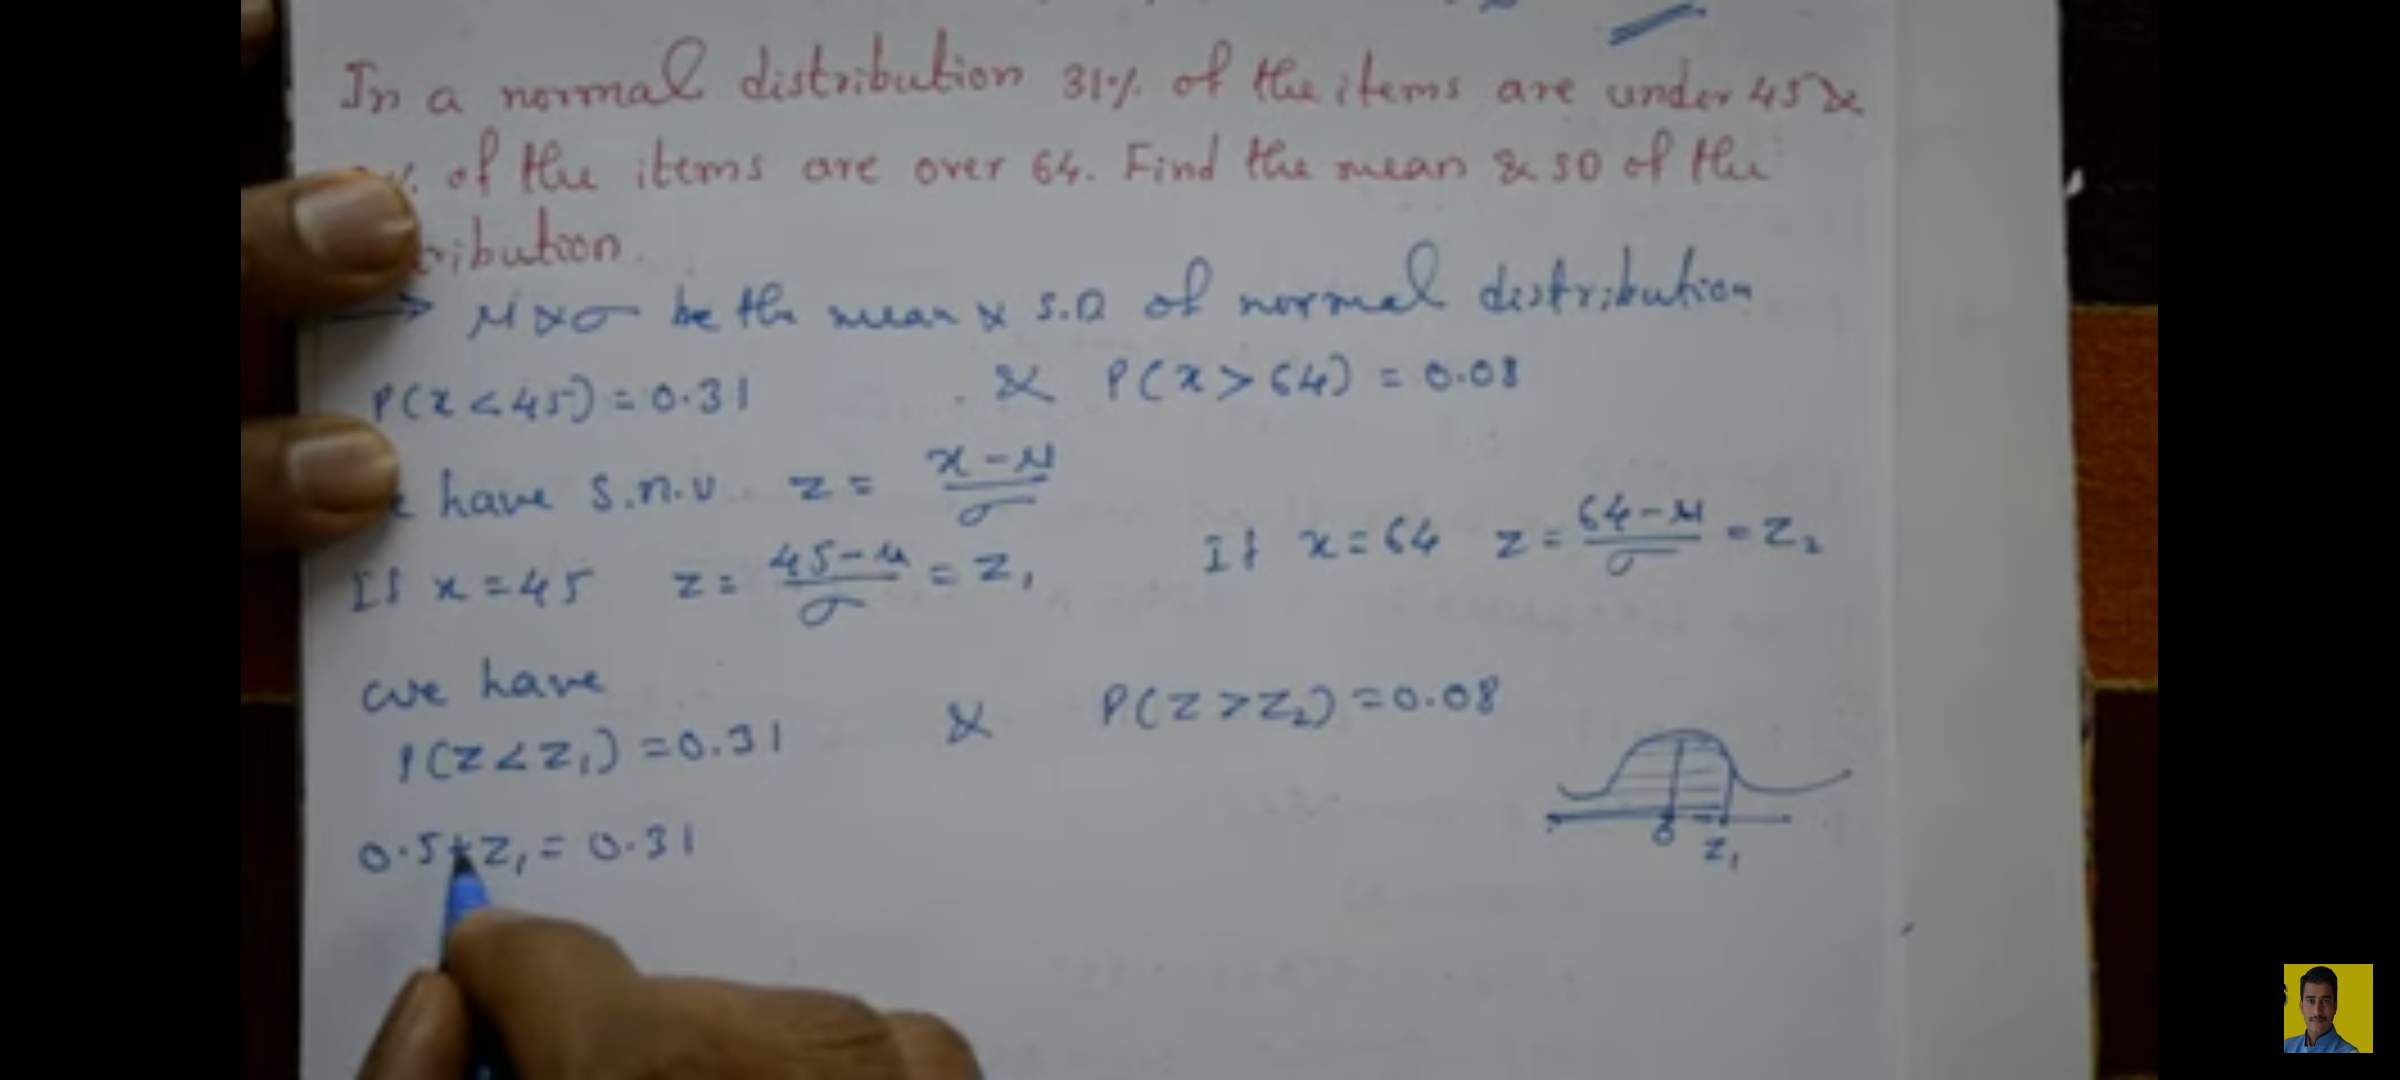 In a normal distribution 31% of the items are under 45 &
% of the items are over 64. Find the mean & SD of the
tribution.
→ μ & σ be the mean & S.D of normal distribution
P(x < 45) = 0.31 & P(x > 64) = 0.08
e have S.n.v z = x - μ / σ
If x = 45 z = 45 - μ / σ = z₁ If x = 64 z = 64 - μ / σ = z₂
we have
P(z < z₁) = 0.31 & P(z > z₂) = 0.08
0.5 + z₁ = 0.31
0 z₁